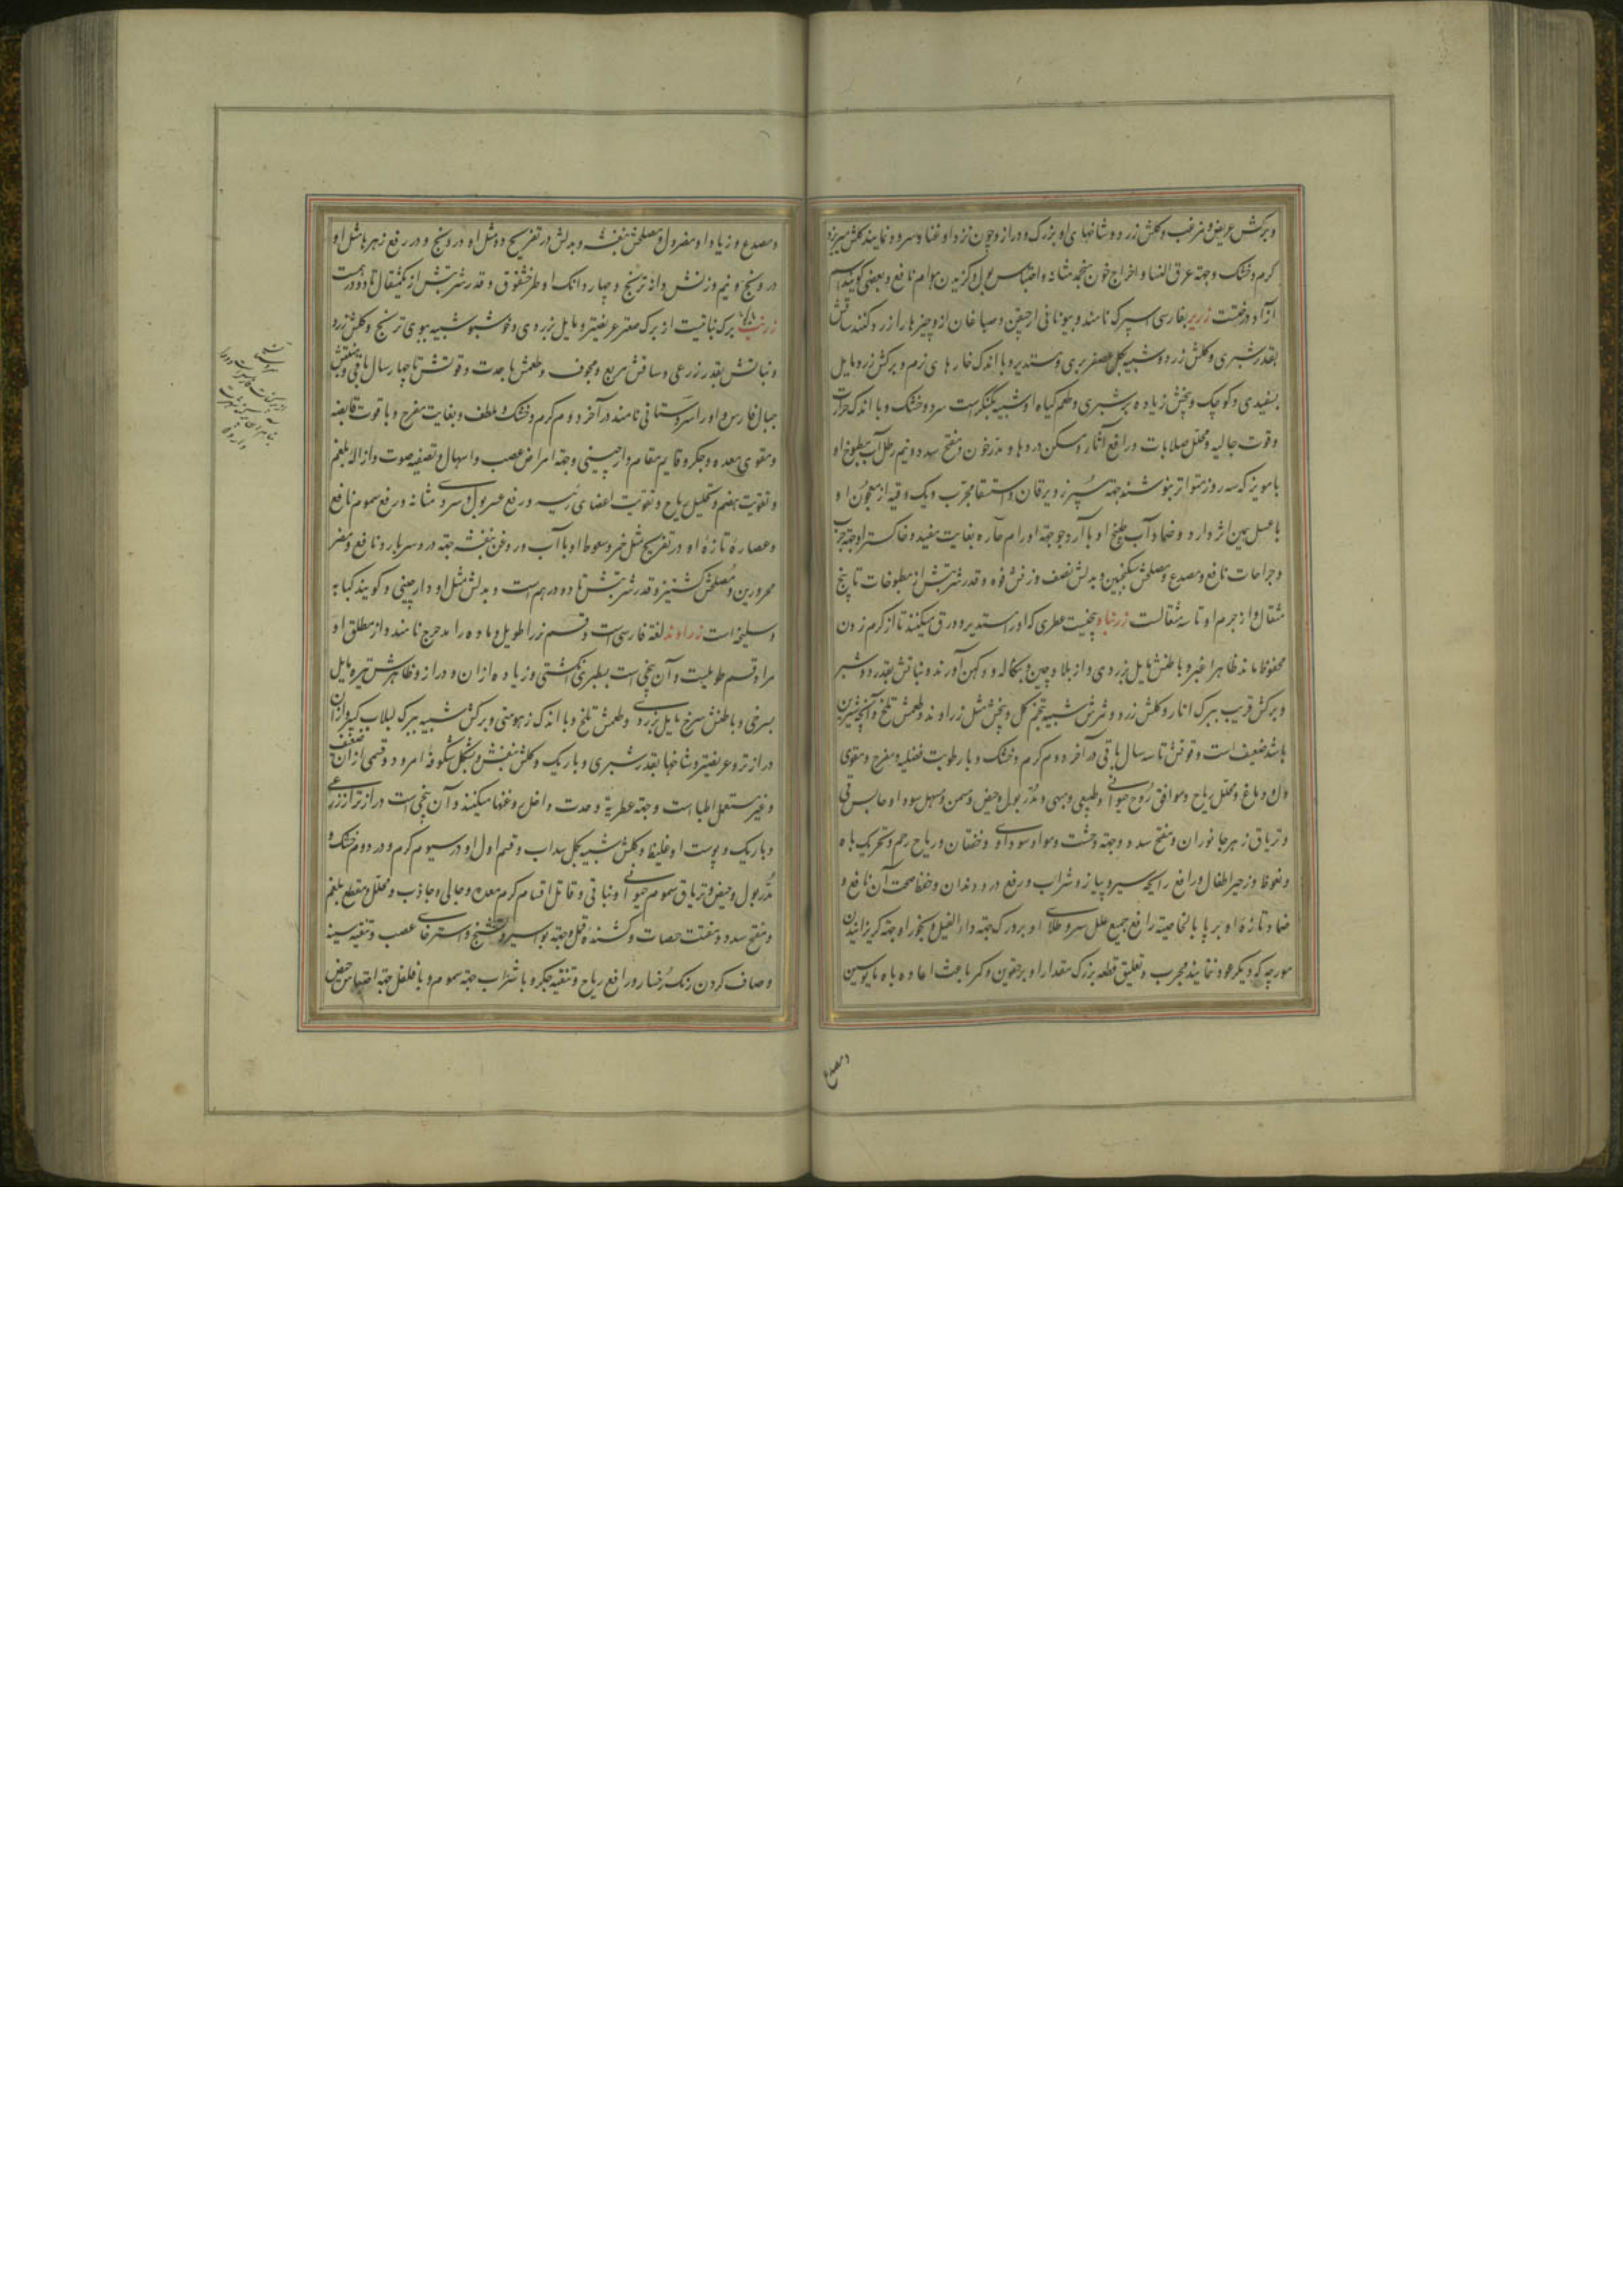 وبرکش عریض و مزغب و کلش زرد و شاخهای او بزرک و دراز و چون نزد او غنا و سرود نمایند کلش میریزد
کرم و خشک و جهة عرق النسا و اخراج خون منجمد مثانه و احتباس بول و کزیدن هوام نافع و بعضی کویند اسم
آزاد درختست زریر بفارسی اسپرک نامند و بیونانی ارجیقن و صباغان ازو چیزها را زرد کنند ساقش
بقدر شبری و کلش زرد و شبیه بکل عصفر بری و مستدیر و با اندک خارهای نرم و برکش زرد مایل
بسفیدی و کوچک و بیخش زیاده بر شبری و طعم کیاه او شبیه بکنکر است سرد و خشک و با اندک حرارت
وقوت جالیه و محلل صلابات و رافع آثار و مسکن دردها و مدر خون و مفتح سدد و نیم رطل آب مطبوخ او
با مویز که سه روز متواتر بنوشند جهة سپرز و یرقان و استسقا مجرب و یک وقیه از معجون او
با عسل همین اثر دارد و ضماد آب طبخ او با آرد جو جهة اورام حاره بغایت مفید و خاکستر او جهة جرب
و جراحات نافع و مصدع و مصلحش سکنجبین و بدلش نصف وزنش فوه و قدر شربتش از مطبوخات تا پنج
مثقال و از جرم او تا سه مثقالست زرنباد بیخیست عطری که او را مستدیر و ورق میکنند تا از کرم زدن
محفوظ ماند ظاهرا اغبر و باطنش مایل بزردی و از بلاد چین و بنکاله و دکهن آورند و نباتش بقدر دو شبر
و برکش قریب ببرک انار و کلش زرد و ثمرش شبیه بتخم کل و بیخش مثل زراوند و طعمش تلخ و آنچه شیرین
باشد ضعیف است و قوتش تا سه سال باقی در آخر دوم کرم و خشک و با رطوبت فضلیه و مفرح و مقوی
دل و دماغ و محلل ریاح و موافق روح حیوانی و طبیعی و مبهی و مدر بول و حیض و مسمن و مسهل سودا و حابس قی
و تریاق زهر جانوران و مفتح سدد و جهة وحشت و مواد سوداوی و خفقان و ریاح رحم و تحریک باه
و نعوظ و زحیر اطفال و رافع رایحه سیر و پیاز و شراب و رفع درد دندان و حفظ صحت آن نافع و
ضماد تازهٔ او بر پا بالخاصیة رافع جمیع علل سر و طلای او بر ورک جهة داء الفیل و بخور او جهة کریزانیدن
مورچه که دیکر عود ننمایند مجرب و تعلیق قطعه بزرک مقدار او بر حقوین و کمر باعث اعاده باه مایوسین
و مصدع
و مصدع و زیاد او مضر دل و مصلحش بنفشه و بدلش در تفریح دو مثل او درونج و در رفع زهرها مثل او
درونج و نیم وزنش دانهٔ ترنج و چهار دانک او طرخشقوق و قدر شربتش از یکمثقال تا دو درهمست
زرنب برک نباتیست از برک صعتر عریضتر و مایل بزردی و خوشبو شبیه ببوی ترنج و کلش زرد
و نباتش بقدر زرعی و ساقش مربع و مجوف و طعمش با حدت و قوتش تا چهار سال باقی و منبتش
جبال فارس و او را سروستانی نامند در آخر دوم کرم و خشک و ملطف و بغایت مفرح و با قوت قابضه
و مقوی معده و جکر و قایم مقام دارچینی و جهة امراض عصب و اسهال و تصفیه صوت و ازاله بلغم
و تقویت هضم و تحلیل ریاح و تقویت اعضای رئیسه و رفع عسر بول و سردی مثانه و رفع سموم نافع
و عصارهٔ تازهٔ او در تفریح مثل خمر و سعوط او با آب و روغن بنفشه جهة درد سر بارد نافع و مضر
محرورین و مصلحش کشنیز و قدر شربتش تا دو درهم است و بدلش مثل او دارچینی و کویند کبابه
و سلیخه است زراوند لغة فارسی است و قسم نر را طویل و ماده را مدحرج نامند و از مطلق او
مراد قسم طویلست و آن بیخی است بسطبری انکشتی و زیاده از آن و دراز و ظاهرش تیره مایل
بسرخی و باطنش سرخ مایل بزردی و طعمش تلخ و با اندک زهومتی و برکش شبیه ببرک لبلاب کبیر و از آن
درازتر و عریضتر و شاخها بقدر شبری و باریک و کلش بنفش و بشکل شکوفهٔ امرود و قسمی از آن ضعیف
و غیر مستعمل اطبا است و جهة عطریة و حدت داخل روغنها میکنند و آن بیخی است درازتر از زرعی
و باریک و پوست او غلیظ و کلش شبیه بکل سداب و قسم اول او در سیوم کرم و در دوم خشک و
مدر بول و حیض و تریاق سموم حیوانی و نباتی و قاتل اقسام کرم معده و جالی و جاذب و محلل و مقطع بلغم
و مفتح سدد و مفتت حصات و کشندهٔ قمل و جهة بواسیر و تشنج و استرخای عصب و تنقیه سینه
و صاف کردن رنک رخسار و رافع ریاح و تنقیه جکر و با شراب جهة سموم و با فلفل جهة احتباس حیض